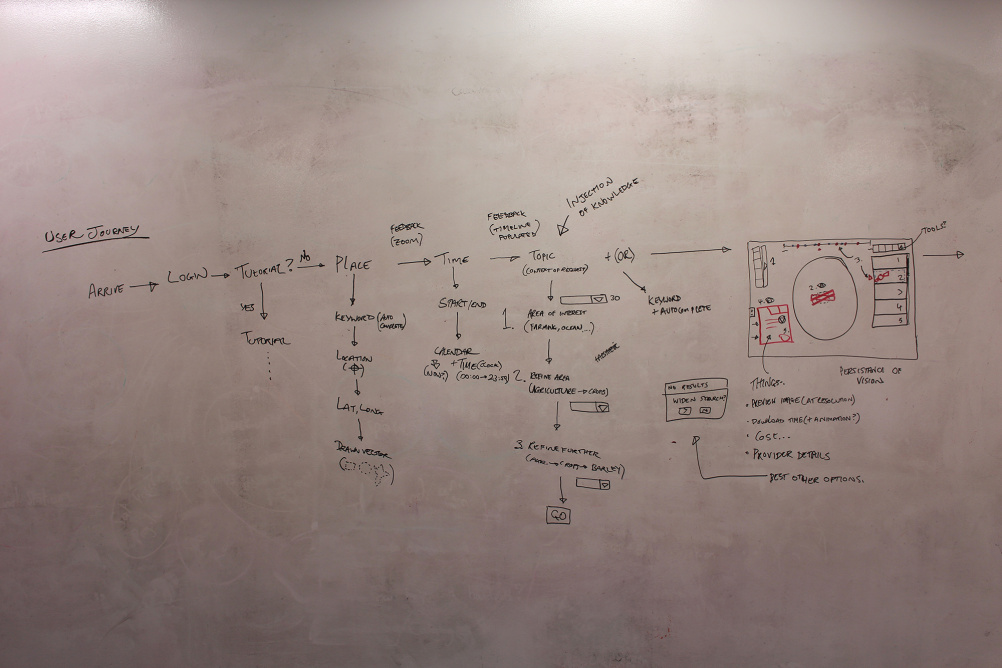 USER JOURNEY
ARRIVE
LOGIN
TUTORIAL?
YES
TUTORIAL
NO
PLACE
KEYWORD (AUTO
COMPLETE)
LOCATION
LAT, LONG
DRAWN VECTOR
FEEDBACK
(ZOOM)
TIME
START/END
CALENDAR
+ TIME (CLOCK)
(NOW?) (00:00 → 23:59)
FEEDBACK
(TIMELINE
POPULATED)
INJECTION
OF KNOWLEDGE
TOPIC
(CONTEXT OF REQUEST)
+ (OR)
KEYWORD
+ AUTOCOMPLETE
20
1. AREA OF INTEREST
(FARMING, OCEAN...)
2. REFINE AREA
(AGRICULTURE → CROPS)
3. REFINE FURTHER
→ CROPS → BARLEY)
GO
NO RESULTS
WIDEN SEARCH?
BEST OTHER OPTIONS.
TOOLS?
1
2.
3.
4.
1
2
3
4
5
PERSISTANCE OF
VISION
THINGS..
• PREVIEW IMAGE (AT RESOLUTION)
- DOWNLOAD TIME (+ ANIMATION?)
• COST...
• PROVIDER DETAILS